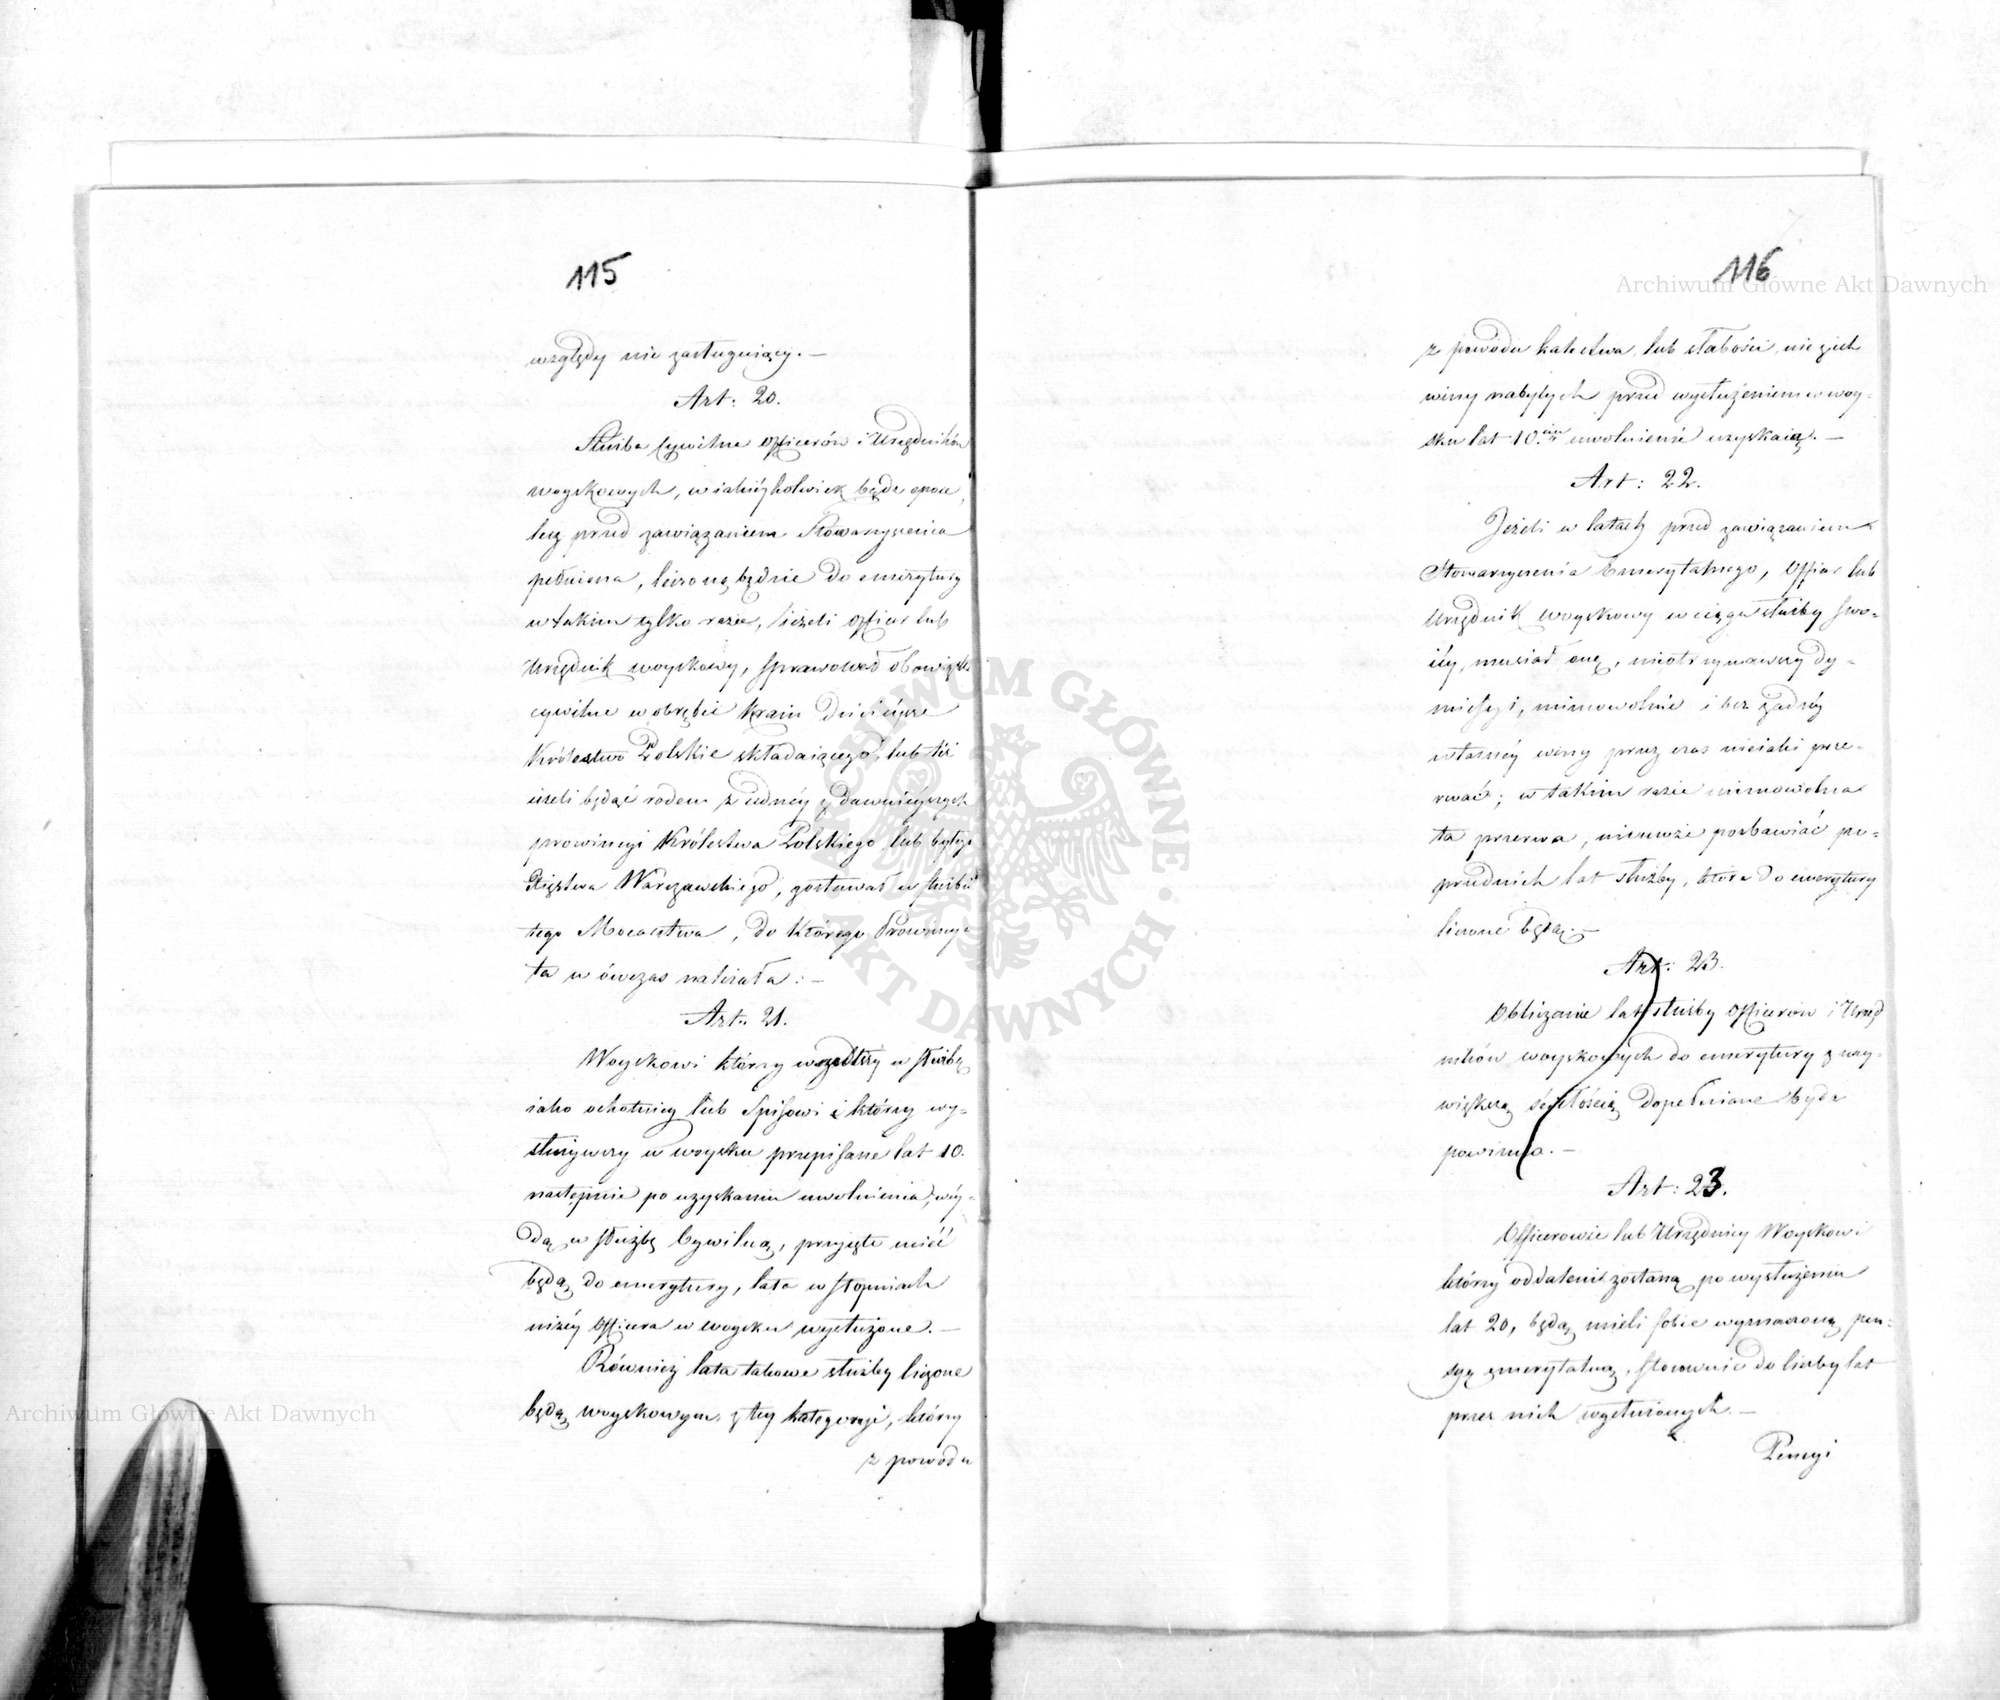 115
względy nie zasługuiący. —
Art: 20.
Służba Cywilna Officerów i Urzędników
woyskowych, w iakieykolwiek bądz epoce,
lecz przed zawiązaniem Stowarzyszenia
pełniona, liczoną będzie do emerytury
w takim tylko razie, ieżeli Officer lub
Urzędnik woyskowy, sprawował obowiązki
cywilne w obrębie Kraiu dzisieysze
Królestwo Polskie składaiącego, lub też
ieżeli będąć rodem z iedney z dawnieyszych
prowincyi Królestwa Polskiego lub byłego
Xięstwa Warszawskiego, zostawał w służbie
tego Mocarstwa, do którego Prowincya
ta w ówczas należała: —
Art: 21.
Woyskowi którzy wszedłszy w służbę
iako ochotnicy lub Spisowi i którzy wy-
służywszy w woysku przepisane lat 10.
następnie po uzyskaniu uwolnienia, wéy-
dą w służbę Cywilną, przyięte mieć
będą do emerytury, lata w stopniach
niżey Officera w woysku wysłużone. —
Również lata takowe służby liczone
będą woyskowym z tey kategoryi, którzy
z powodu
116
z powodu kalectwa lub słabości, nie z ich
winy nabytych przed wysłużeniem w woy-
sku lat 10.ciu uwolnienie uzyskaią. —
Art: 22.
Jeżeli w latach przed zawiązaniem
Stowarzyszenia Emerytalnego, Officer lub
Urzędnik woyskowy w ciągu służby swo-
iéy, musiał onę, nieotrzymawszy dy-
missyi, mimowolnie i bez żadnéy
własnéy winy przez czas nieiaki prze-
rwać; w takim razie mimowolna
ta przerwa, niemoże pozbawiać po-
przednich lat służby, które do emerytury
liczone będą. —
Art: 23.
Obliczanie lat służby Officerów i Urzęd
ników woyskowych do emerytury z nay-
większą ścisłością dopełniane bydz
powinno. —
Art: 23.
Officerowie lub Urzędnicy Woyskowi
którzy oddaleni zostaną po wysłużeniu
lat 20, będą mieli sobie wyznaczoną pen-
syę emerytalną, stosownie do liczby lat
przez nich wysłużonych. —
Pensyi
Archiwum Główne Akt Dawnych
Archiwum Główne Akt Dawnych
ARCHIWUM GŁÓWNE
AKT DAWNYCH